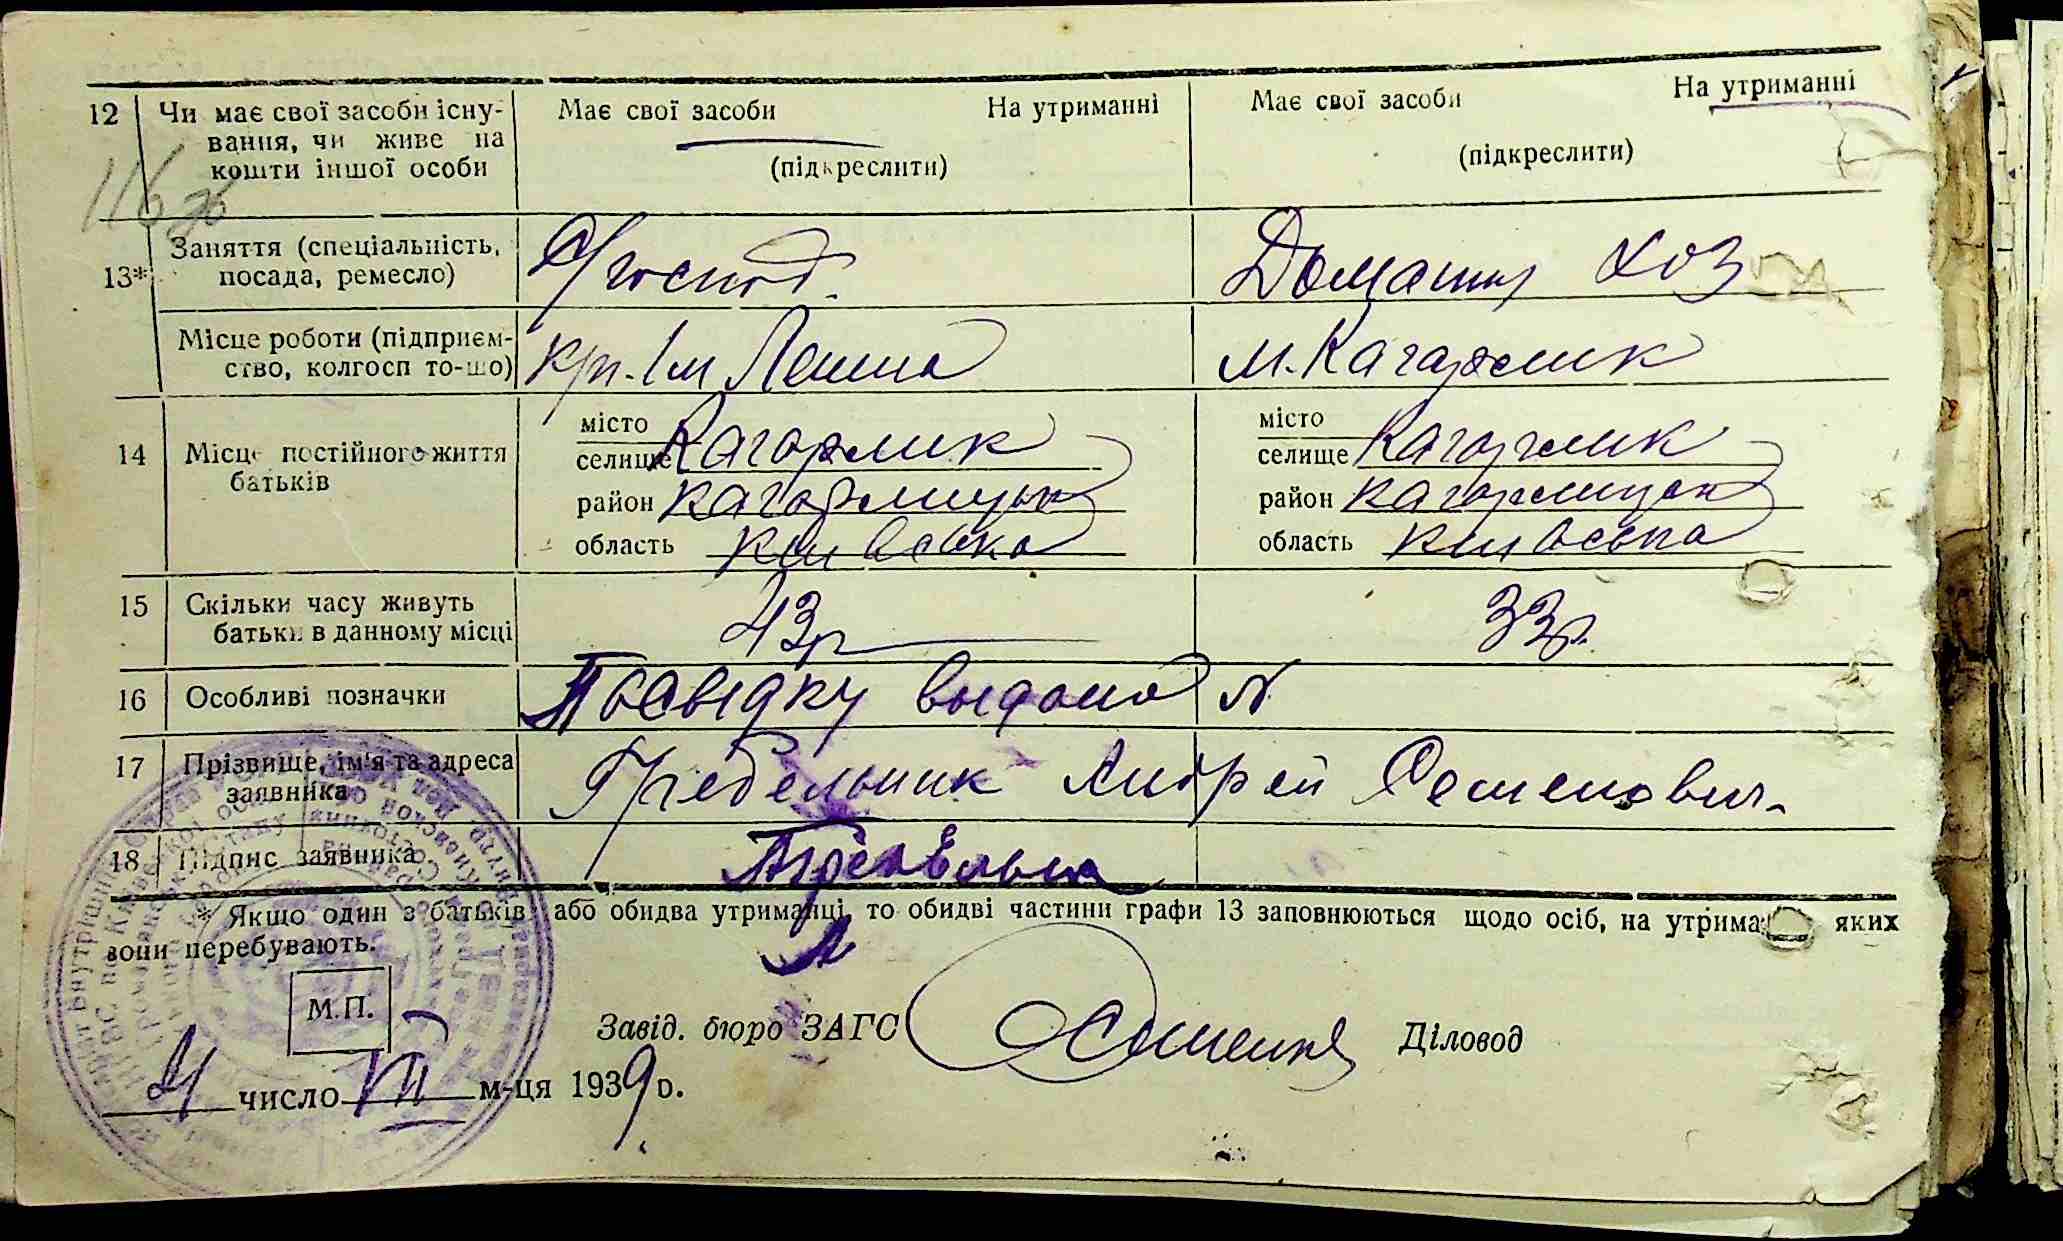 12 Чи має свої засоби існу- Має свої засоби На утриманні Має свої засоби На утриманні
вання, чи живе на
кошти іншої особи (підкреслити) (підкреслити)
Заняття (спеціальність, С/господ. Домашня хоз
13* посада, ремесло)
Місце роботи (підприєм- Кри. Ім Леніна м. Кагарлик
ство, колгосп то-що)
місто місто
14 Місце постійного життя селище Кагарлик селище Кагарлик
батьків район Кагарлицьк район Кагарлицьк
область Київська область Київська
15 Скільки часу живуть 43 р 33 р.
батьки в данному місці
16 Особливі позначки Посвідку видано N
17 Прізвище, ім'я та адреса Гребельник Андрей Семенович.
заявника
18 Підпис заявника Гребельник
* Якщо один з батьків або обидва утриманці, то обидві частини графи 13 заповнюються щодо осіб, на утрима яких
вони перебувають.
М.П.
Завід. бюро ЗАГС Діловод
число VII м-ця 1939 р.